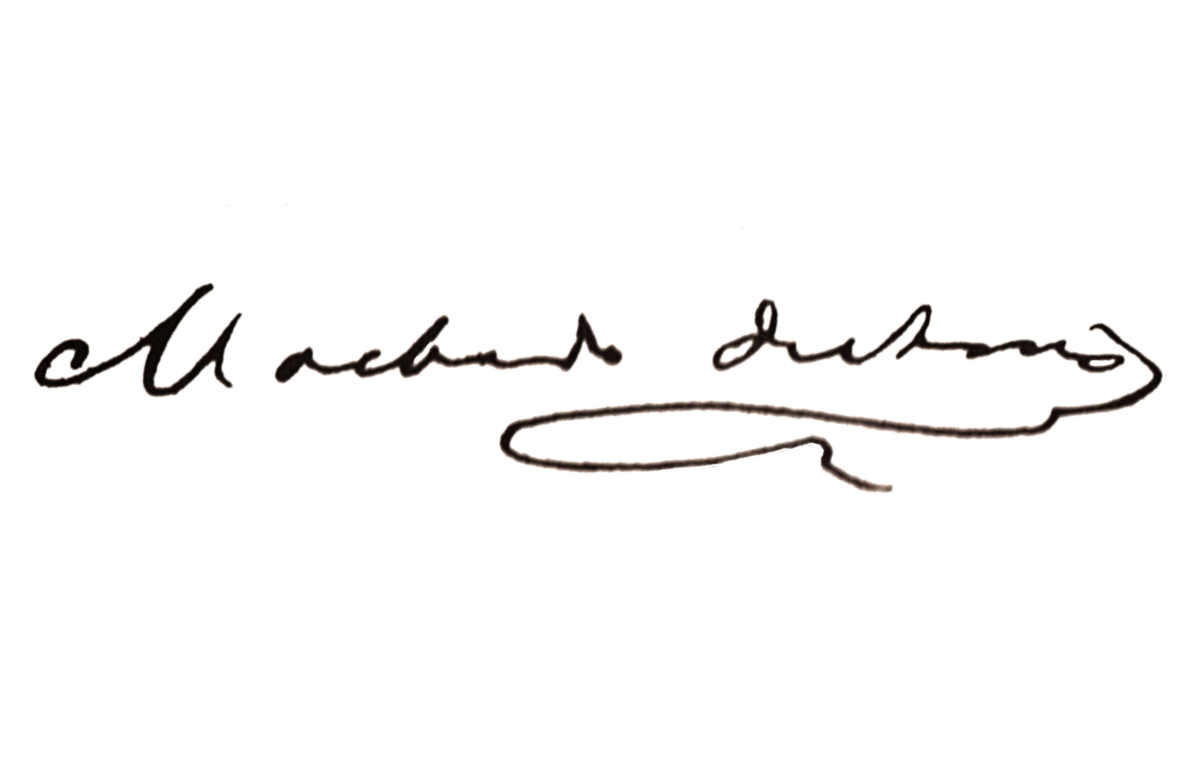 Machado de Assis